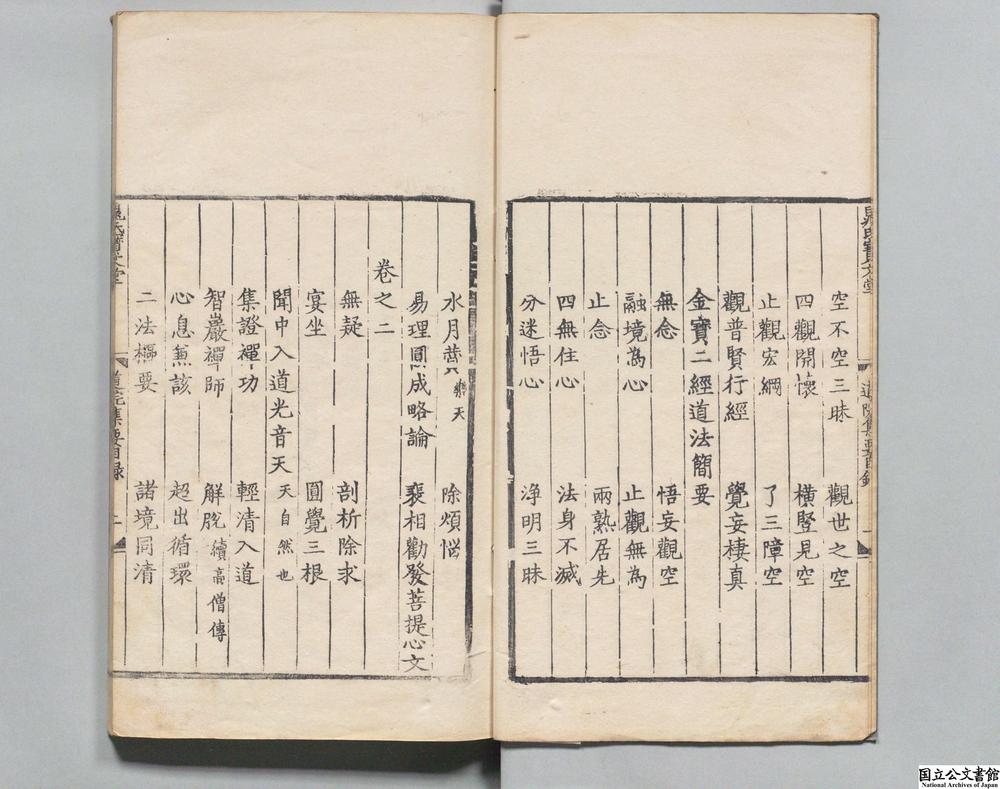 空不空三昧　觀世之空
四觀開懷　橫豎見空
止觀宏綱　了三障空
觀普賢行經　覺妄棲真
金寶二經道法簡要
無念　悟妄觀空
融境為心　止觀無為
止念　兩熟居先
四無住心　法身不滅
分迷悟心　淨明三昧
水月　樂天　除煩惱
易理圓成略論　裴相勸發菩提心文
卷之二
無疑　剖析除求
宴坐　圓覺三根
聞中入道光音天　天自然也
集證禪功　輕清入道
智巖禪師　解脫　續高僧傳
心息兼該　超出循環
二法樞要　諸境同清
道院集要目錄
二
国立公文書館
National Archives of Japan